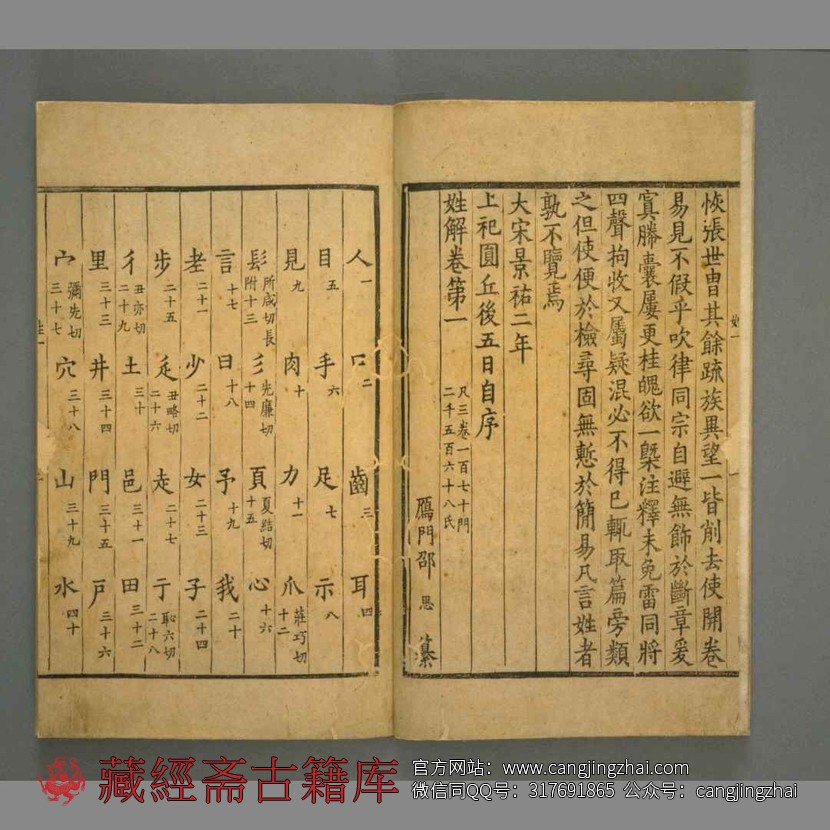 恢張世曹其餘疏族異望一皆削去使開卷
易見不假乎吹律同宗自避無飾於斷章爰
寘縢囊屢更桂魄欲一槩注釋未免雷同將
四聲拘收又屬疑混必不得已輒取篇旁類
之但使便於檢尋固無慙於簡易凡言姓者
孰不覽焉
大宋景祐二年
上祀圓丘後五日自序
姓解卷第一 凡三卷一百七十門
二千五百六十八氏
鴈門邵 思 纂
人一 口二 齒三 耳四
目五 手六 足七 示八
見九 肉十 力十一 爪莊巧切十二
髟所咸切長附十三 彡先廉切十四 頁夏詰切十五 心十六
言十七 曰十八 予十九 我二十
老二十一 少二十二 女二十三 子二十四
步二十五 辵丑略切二十六 走二十七 亍恥六切二十八
彳丑亦切二十九 土三十 邑三十一 田三十二
里三十三 井三十四 門三十五 戶三十六
宀彌先切三十七 穴三十八 山三十九 水四十
藏經斋古籍库
官方网站：www.cangjingzhai.com
微信同QQ号：317691865 公众号：cangjingzhai